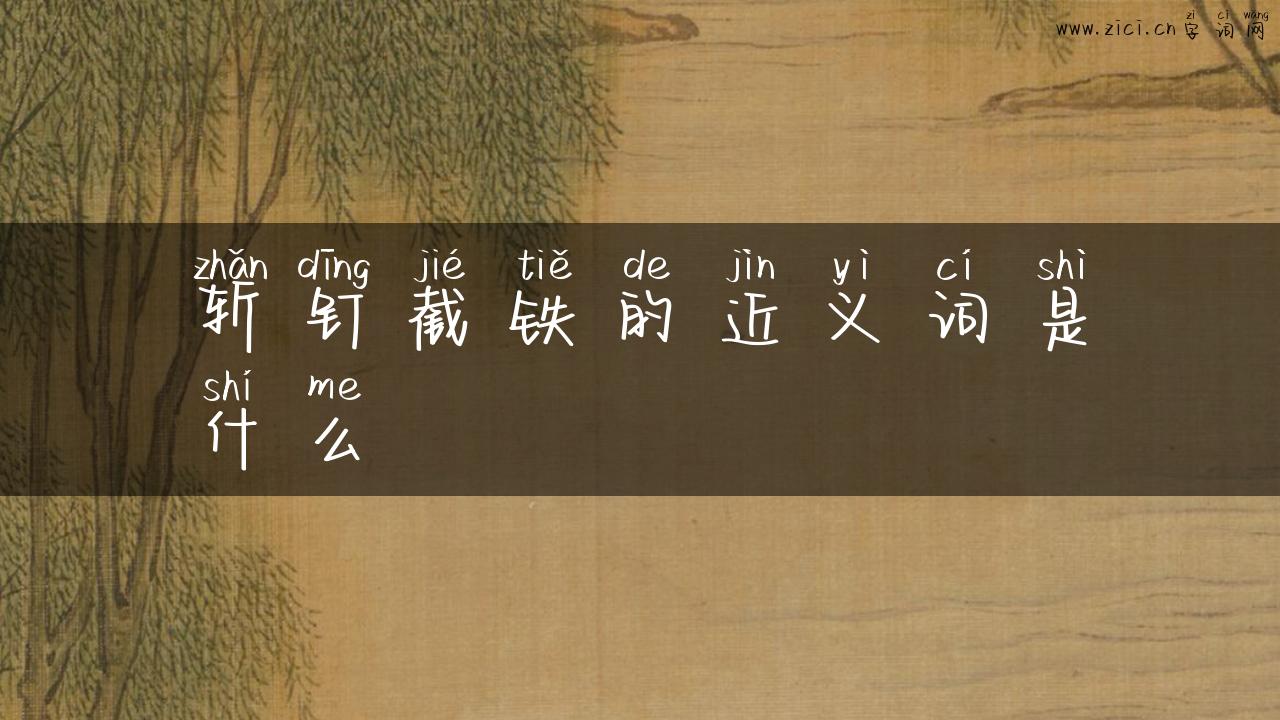 zì cí wǎng
www.zici.cn 字词网
zhǎn dīng jié tiě de jìn yì cí shì
斩钉截铁的近义词是
shí me
什么